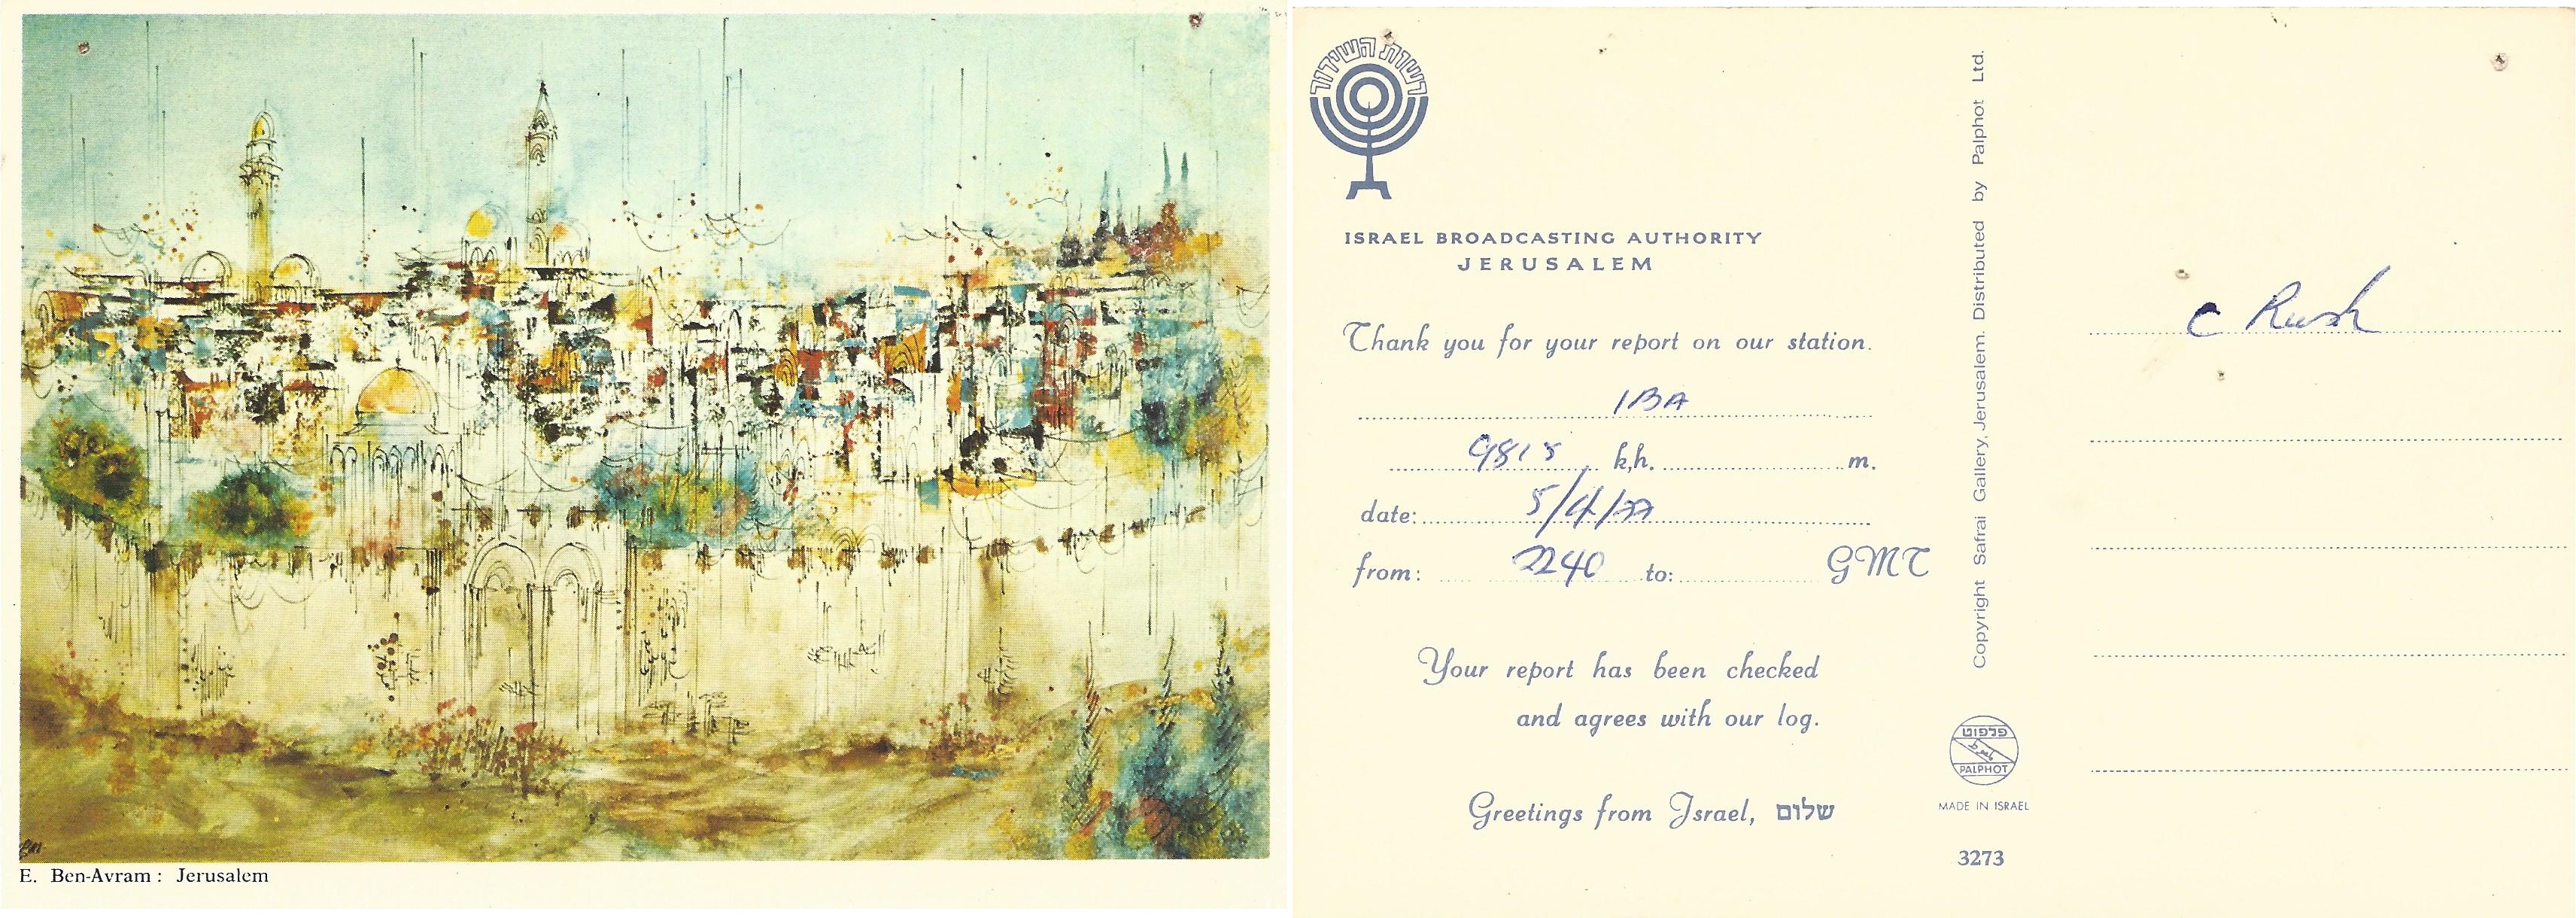 E. Ben-Avram : Jerusalem
רשות השידור
ISRAEL BROADCASTING AUTHORITY
JERUSALEM
Thank you for your report on our station.
IBA
9815 k,h. m.
date: 5/4/77
from: 2240 to: GMT
Your report has been checked
and agrees with our log.
Greetings from Israel, שלום
Copyright Safrai Gallery, Jerusalem. Distributed by Palphot Ltd.
פלפוט
PALPHOT
MADE IN ISRAEL
3273
C Rush